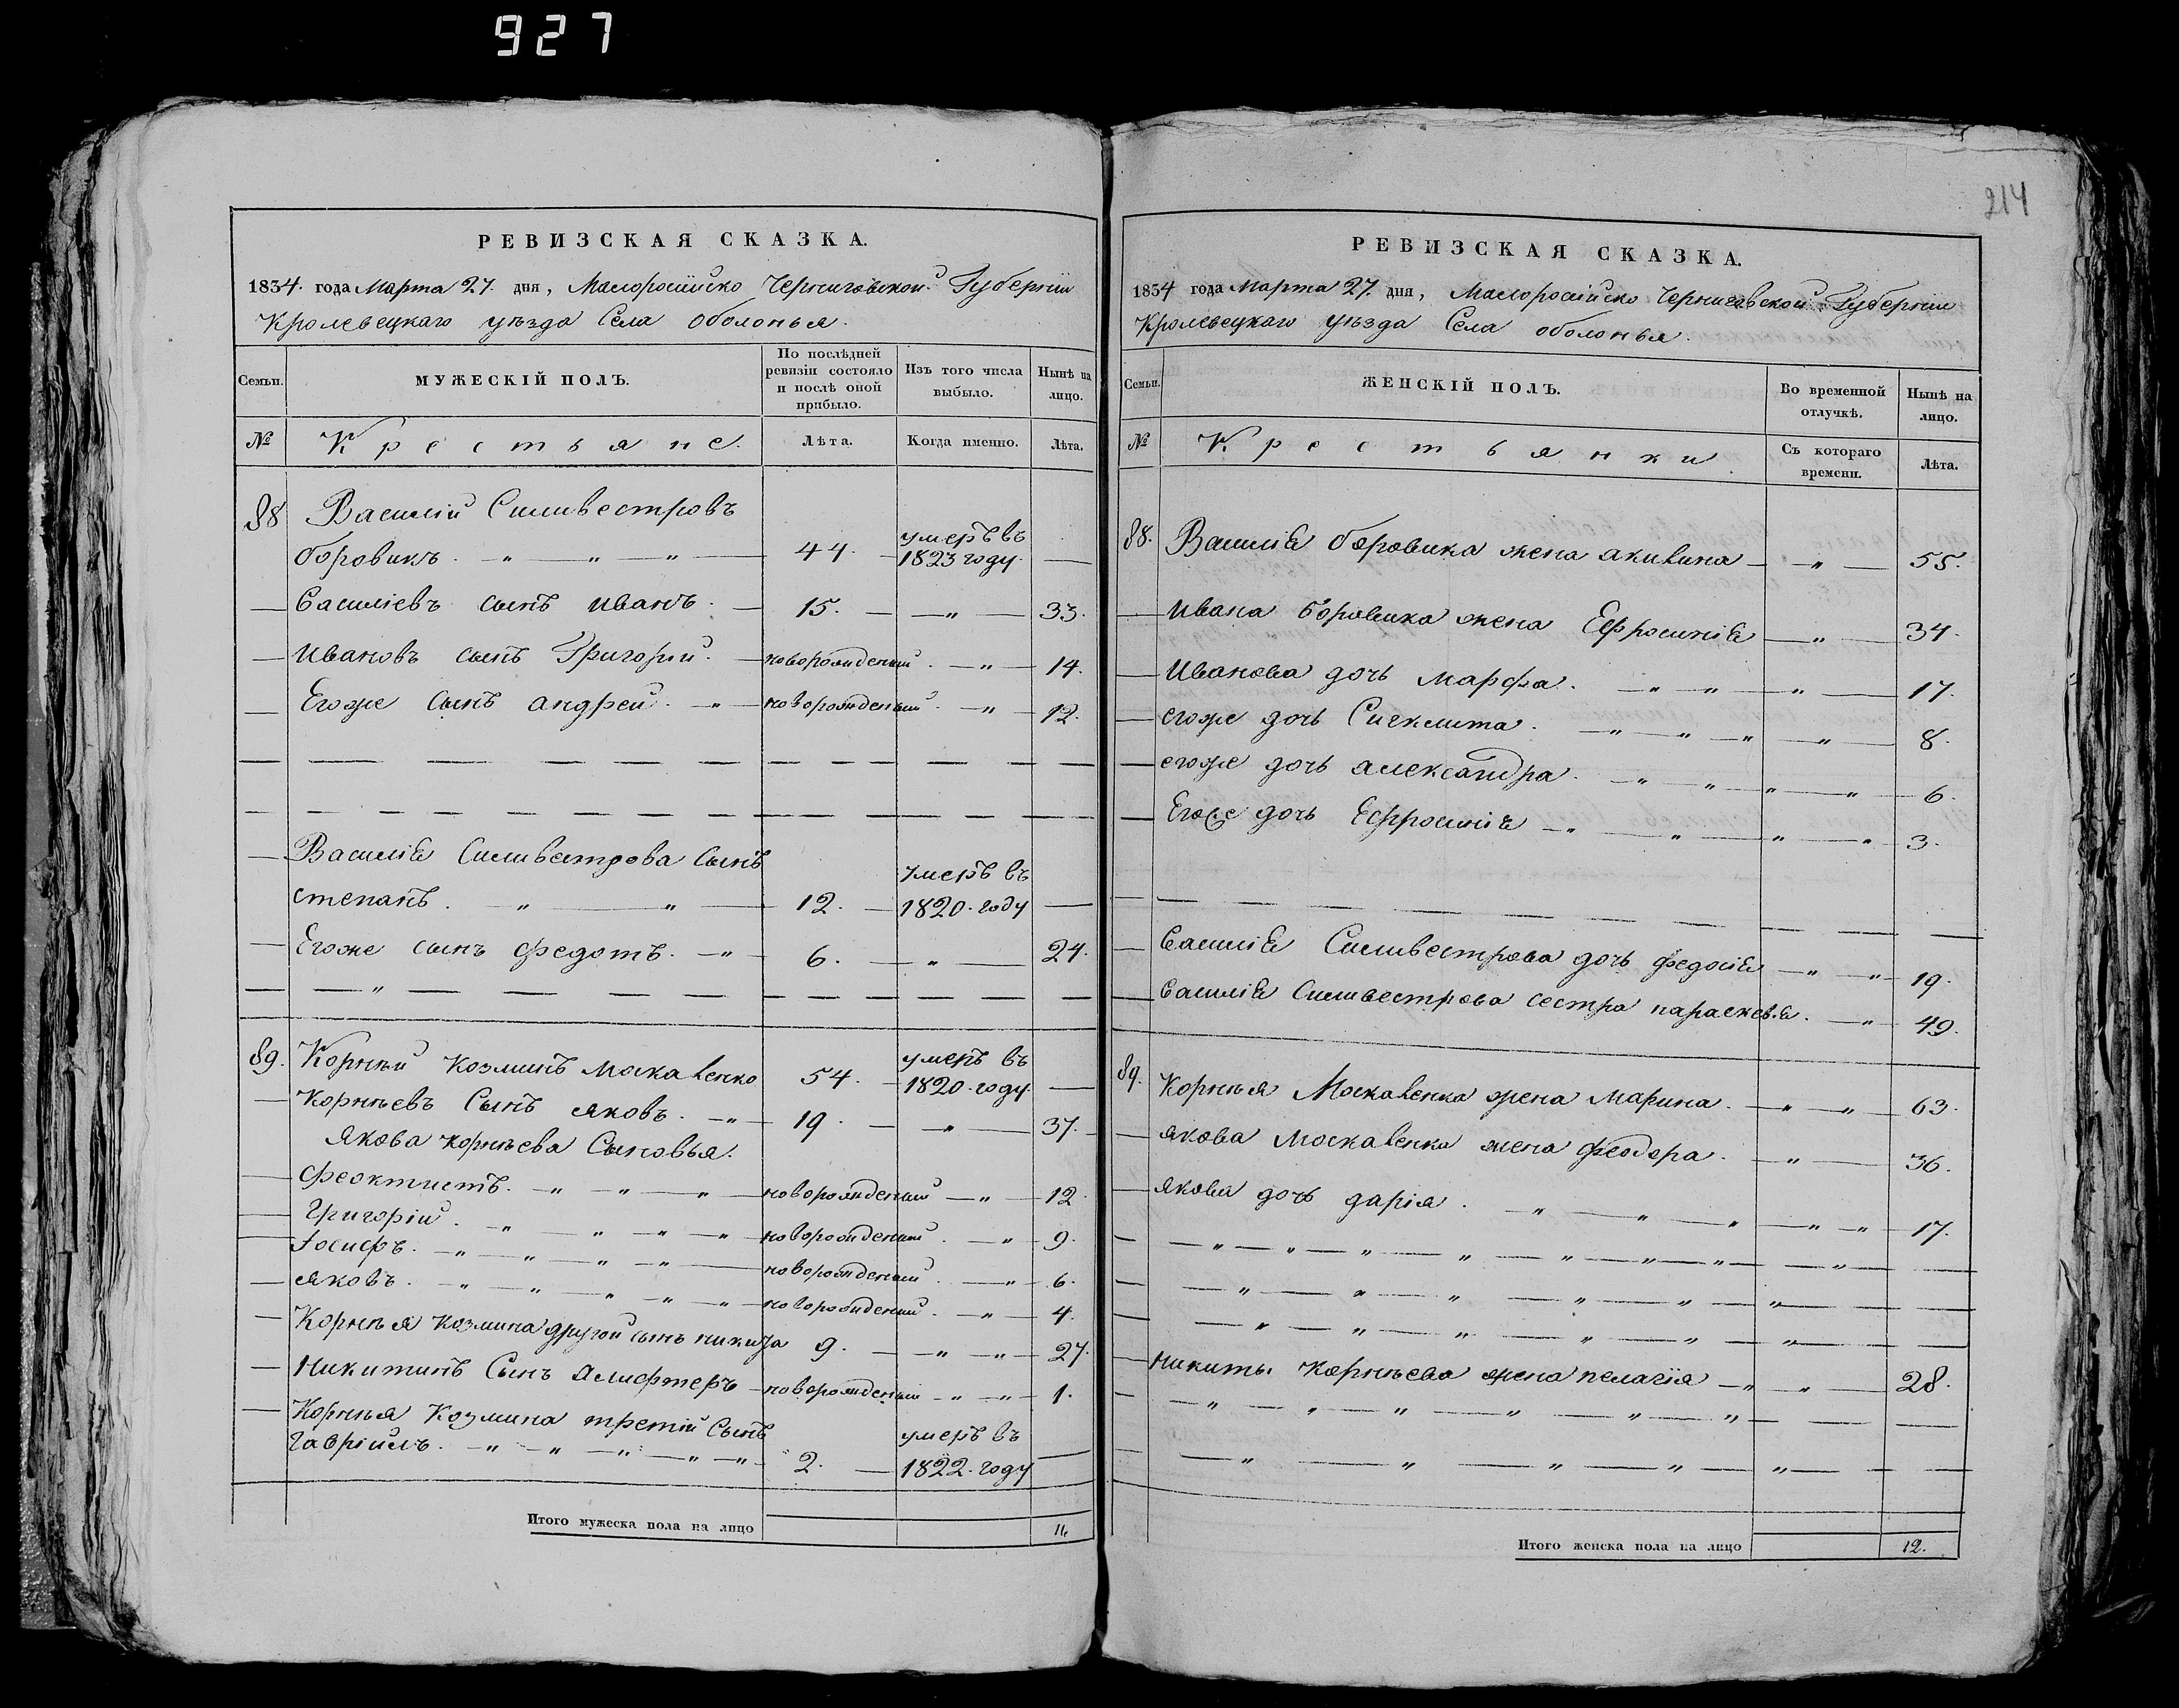 927
214
РЕВИЗСКАЯ СКАЗКА.
1834. года Марта 27. дня, Малоросійско Черниговской Губерніи
Кролевецкаго уѣзда Села Оболонья.
Семьи.
МУЖЕСКІЙ ПОЛЪ.
По послѣдней ревизіи состояло и послѣ оной прибыло.
Изъ того числа выбыло.
Нынѣ на лицо.
№
Крестьяне.
Лѣта.
Когда именно.
Лѣта.
88 Василій Сильвестровъ
боровикъ. " " " 44. умеръ въ 1823 году. —
— Василіевъ сынъ иванъ. — 15. — " — 33.
— ивановъ сынъ Григорій. — новорожденый. — " — 14.
— Егоже сынъ андрей. " — новорожденый. — " — 12.
— Василія Сильвестрова Сынъ
степанъ. " " 12. — умеръ въ 1820. году —
— Егоже сынъ федотъ. — " — 6. — " — 24.
— — " — — — — — — — — — —
89. Корнѣй Козминъ москавенко 54. — умеръ въ 1820. году —
— Корнѣевъ Сынъ яковъ. — " — 19. — " — 37.
Якова корнѣева Сыновья.
— Феоктистъ. — " — " — " — новорожденый — " — 12.
— Григорій. — " — " — " — " — новорожденый. — " — 9.
— Іосифъ. — " — " — " — " — новорожденый. — " — 6.
— яковъ. — " — " — " — " — " — новорожденый. — " — 4.
— Корнѣя Козмина другой сынъ никита 9. — " — " — 27.
— Никитинъ Сынъ Алифтеръ — новорожденый — " — " — 1.
— Корнѣя Козмина третій Сынъ
гавріилъ. — " — " — " — " — " — 2. — умеръ въ 1822. году —
Итого мужеска пола на лицо
11.
РЕВИЗСКАЯ СКАЗКА.
1834 года Марта 27. дня, Малоросійско Черниговской Губерніи
Кролевецкаго уѣзда Села оболонья.
Семьи.
ЖЕНСКІЙ ПОЛЪ.
Во временной отлучкѣ.
Нынѣ на лицо.
№
Крестьянки.
Съ котораго времени.
Лѣта.
88. Василія боровика жена акилина — " — 55.
— Ивана боровика жена Ефросинія — " — 34.
— Иванова дочь марфа. — " — " — " — 17.
— егоже дочь Сигклита. — " — " — " — " — 8.
— егоже дочь александра. — " — " — " — " — 6.
— Егоже дочь Ефросинія — " — " — " — " — 3.
— Василія Сильвестрова дочь федосія — " — " — 19.
— Василія Сильвестрова сестра параскевія. — " — 49.
89. Корнѣя Москавенка жена марина. — " — " — 63.
— якова москавенка жена феодора. — " — 36.
— якова дочь дарія. — " — " — " — " — " — 17.
— Никиты Корнѣева жена пелагія — " — " — 28.
Итого женска пола на лицо
12.